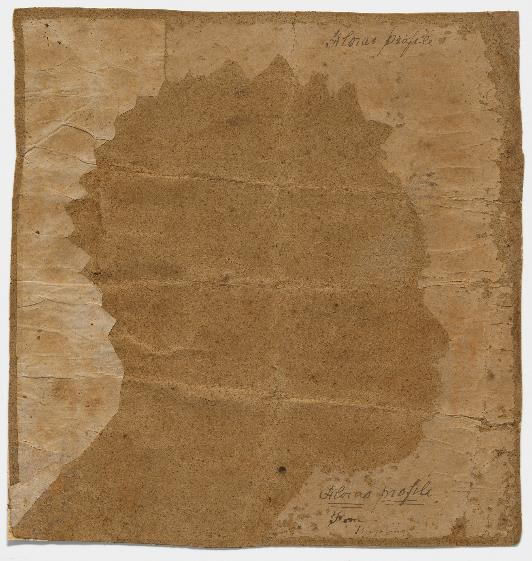 Floras profile
Floras profile
From